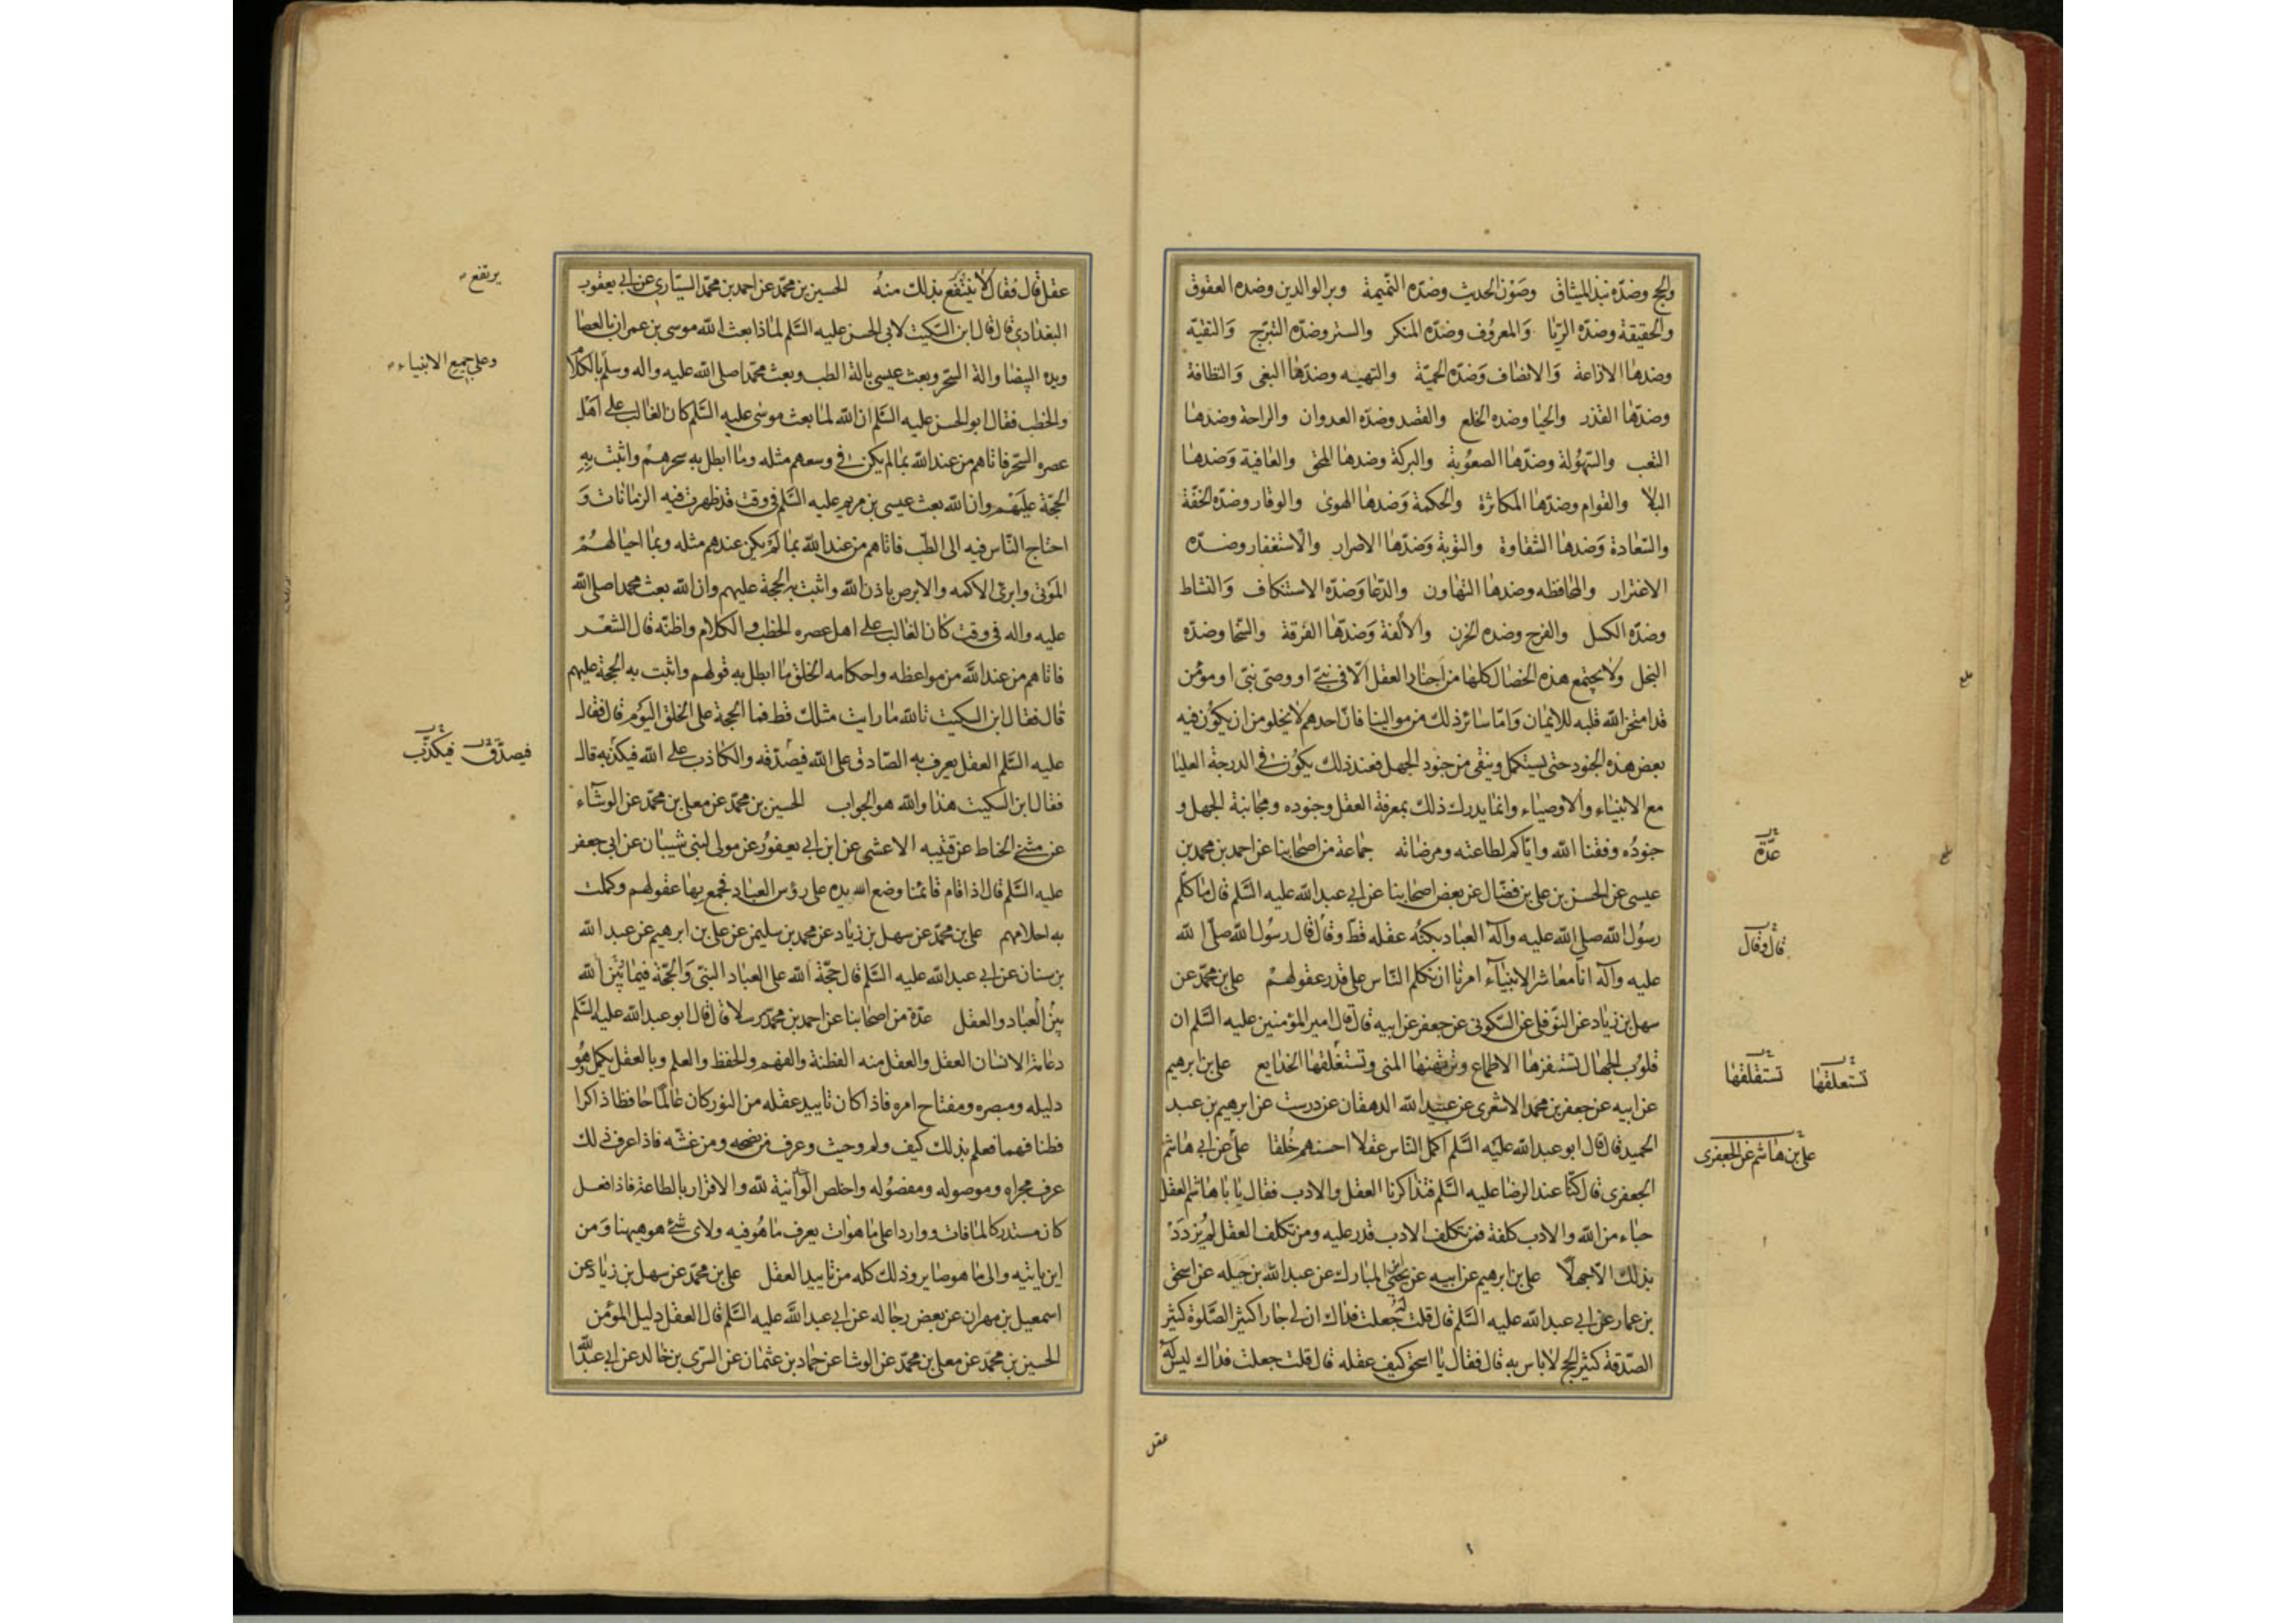 والحج وضده نبذ الميثاق وصون الحديث وضده النميمة وبر الوالدين وضده العقوق
والحقيقة وضده الريا والمعروف وضده المنكر والستر وضده التبرج والتقيه
وضدها الاذاعة والانصاف وضده الحمية والتهيه وضدها البغى والنظافة
وضدها القذر والحيا وضده الخلع والقصد وضده العدوان والراحة وضدها
التعب والسهولة وضدها الصعوبة والبركة وضدها المحق والعافية وضدها
البلا والقوام وضدها المكاثرة والحكمة وضدها الهوى والوقار وضده الخفة
والسعادة وضدها الشقاوة والتوبة وضدها الاصرار والاستغفار وضده
الاغترار والمحافظه وضدها التهاون والدعا وضده الاستنكاف والنشاط
وضده الكسل والفرح وضده الحزن والألفة وضدها الفرقة والسخا وضده
البخل ولا يجتمع هذه الخصال كلها من اجناد العقل الا فى نبى او وصى نبى او مؤمن
قد امتحن الله قلبه للايمان واما سائر ذلك من موالينا فان احدهم لا يخلو من ان يكون فيه
بعض هذه الجنود حتى يستكمل وينقى من جنود الجهل فعند ذلك يكون فى الدرجة العليا
مع الانبياء والاوصياء وانما يدرك ذلك بمعرفة العقل وجنوده ومجانبة الجهل و
جنوده وفقنا الله واياكم لطاعته ومرضاته جماعة من اصحابنا عن احمد بن محمد بن
عيسى عن الحسن بن على بن فضال عن بعض اصحابنا عن ابى عبد الله عليه السلم قال ما كلم
رسول الله صلى الله عليه وآله العباد بكنه عقله قط وقال قال رسول الله صلى الله
عليه وآله انا معاشر الانبياء امرنا ان نكلم الناس على قدر عقولهم على بن محمد عن
سهل بن زياد عن النوفلى عن السكونى عن جعفر عن ابيه قال قال امير المؤمنين عليه السلم ان
قلوب الجهال تستفزها الاطماع وترتهنها المنى وتستغلقها الخدايع على بن ابرهيم
عن ابيه عن جعفر بن محمد الاشعرى عن عبيد الله الدهقان عن درست عن ابرهيم بن عبد
الحميد قال قال ابو عبد الله عليه السلم اكمل الناس عقلا احسنهم خلقا على عن ابى هاشم
الجعفرى قال كنا عند الرضا عليه السلم فتذاكرنا العقل والادب فقال يا باهاشم العقل
حباء من الله والادب كلفة فمن تكلف الادب قدر عليه ومن تكلف العقل لم يزدد
بذلك الا جهلا على بن ابرهيم عن ابيه عن يحيى بن المبارك عن عبد الله بن جبله عن اسحق
بن عمار عن ابى عبد الله عليه السلم قال قلت له جعلت فداك ان لى جارا كثير الصلوة كثير
الصدقة كثير الحج لا باس به قال فقال يا اسحق كيف عقله قال قلت جعلت فداك ليس له
عدة
قال وقال
تستعلقها تستقلقها
على بن هاشم عن الجعفرى
عقل
عقل قال فقال لا ينتفع بذلك منه الحسين بن محمد عن احمد بن محمد السيارى عن ابى يعقوب
البغدادى قال قال ابن السكيت لابى الحسن عليه السلم لماذا بعث الله موسى بن عمران بالعصا
ويده البيضا والة السحر وبعث عيسى بالة الطب وبعث محمدا صلى الله عليه واله وسلم بالكلام
والخطب فقال ابو الحسن عليه السلم ان الله لما بعث موسى عليه السلم كان الغالب على اهل
عصره السحر فاتاهم من عند الله بما لم يكن فى وسعهم مثله وما ابطل به سحرهم واثبت به
الحجة عليهم وان الله بعث عيسى بن مريم عليه السلم فى وقت قد ظهرت فيه الزمانات و
احتاج الناس فيه الى الطب فاتاهم من عند الله بما لم يكن عندهم مثله وبما احيا لهم
الموتى وابرئ الاكمه والابرص باذن الله واثبت به الحجة عليهم وان الله بعث محمدا صلى الله
عليه واله فى وقت كان الغالب على اهل عصره الخطب والكلام واظنه قال الشعر
فاتاهم من عند الله من مواعظه واحكامه الخلق ما ابطل به قولهم واثبت به الحجة عليهم
قال فقال ابن السكيت تالله ما رايت مثلك قط فما الحجة على الخلق اليوم قال فقال
عليه السلم العقل يعرف به الصادق على الله فيصدقه والكاذب على الله فيكذبه قال
فقال ابن السكيت هذا والله هو الجواب الحسين بن محمد عن معلى بن محمد عن الوشاء
عن مثنى الحناط عن قتيبه الاعشى عن ابن ابى يعفور عن مولى لبنى شيبان عن ابى جعفر
عليه السلم قال اذا قام قائمنا وضع الله يده على رؤس العباد فجمع بها عقولهم وكملت
به احلامهم على بن محمد عن سهل بن زياد عن محمد بن سليمن عن على بن ابرهيم عن عبد الله
بن سنان عن ابى عبد الله عليه السلم قال حجة الله على العباد النبى والحجة فيما بين الله
بين العباد والعقل عدة من اصحابنا عن احمد بن محمد مرسلا قال قال ابو عبد الله عليه السلم
دعامة الانسان العقل والعقل منه الفطنة والفهم والحفظ والعلم وبالعقل يكمل وهو
دليله ومبصره ومفتاح امره فاذا كان تاييد عقله من النور كان عالما حافظا ذاكرا
فطنا فهما فعلم بذلك كيف ولم وحيث وعرف من نصحه ومن غشه فاذا عرف ذلك
عرف مجراه وموصوله ومفصوله واخلص الوحدانية لله والاقرار بالطاعة فاذا فعل
كان مستدركا لما فات وواردا على ما هو آت يعرف ما هو فيه ولاى شئ هو هيهنا ومن
اين ياتيه والى ما هو صاير وذلك كله من تاييد العقل على بن محمد عن سهل بن زياد عن
اسمعيل بن مهران عن بعض رجاله عن ابى عبد الله عليه السلم قال العقل دليل المؤمن
الحسين بن محمد عن معلى بن محمد عن الوشا عن حماد بن عثمان عن السرى بن خالد عن ابى عبد الله
يرتفع
وعلى جميع الانبياء
فيصدق فيكذب